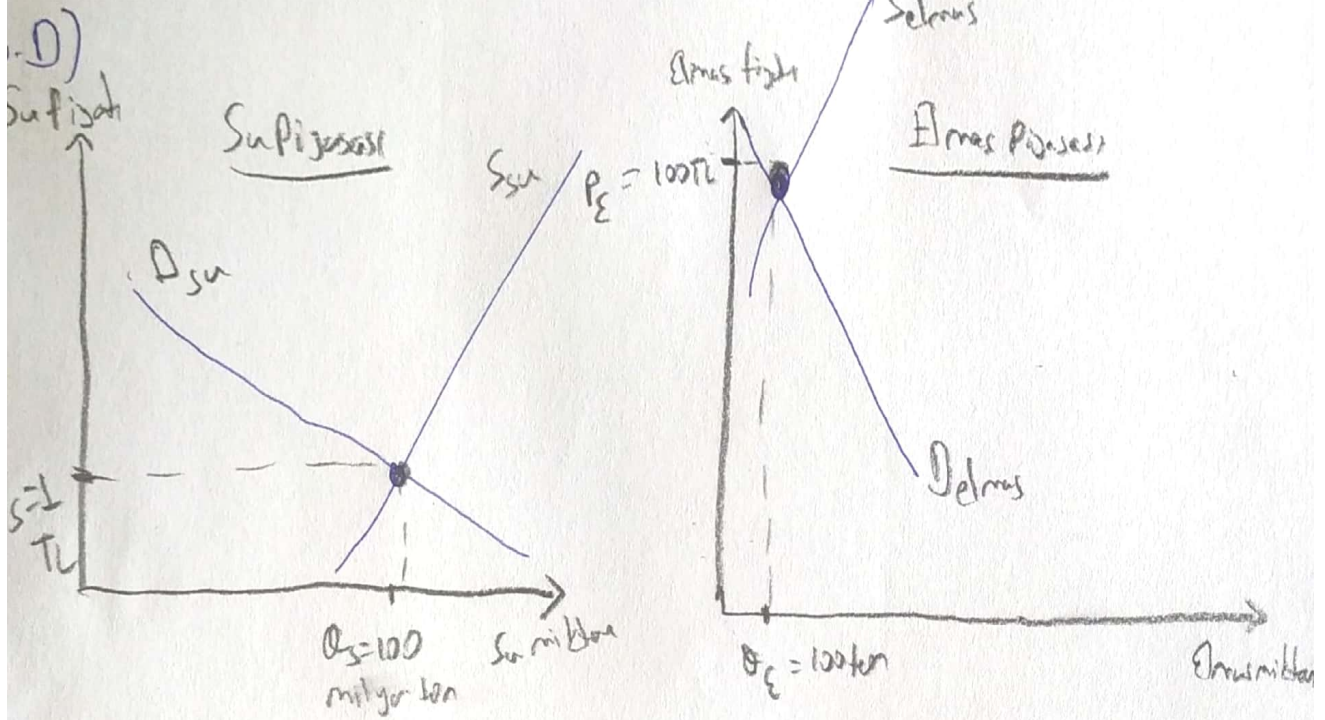 .D)
Su fiyatı
Su Piyasası
Ssu
Dsu
s=1
TL
Qs=100
milyar ton
Su miktarı
Selmas
Elmas fiyatı
Elmas Piyasası
PE = 100TL
Delmas
QE = 100 ton
Elmas miktarı